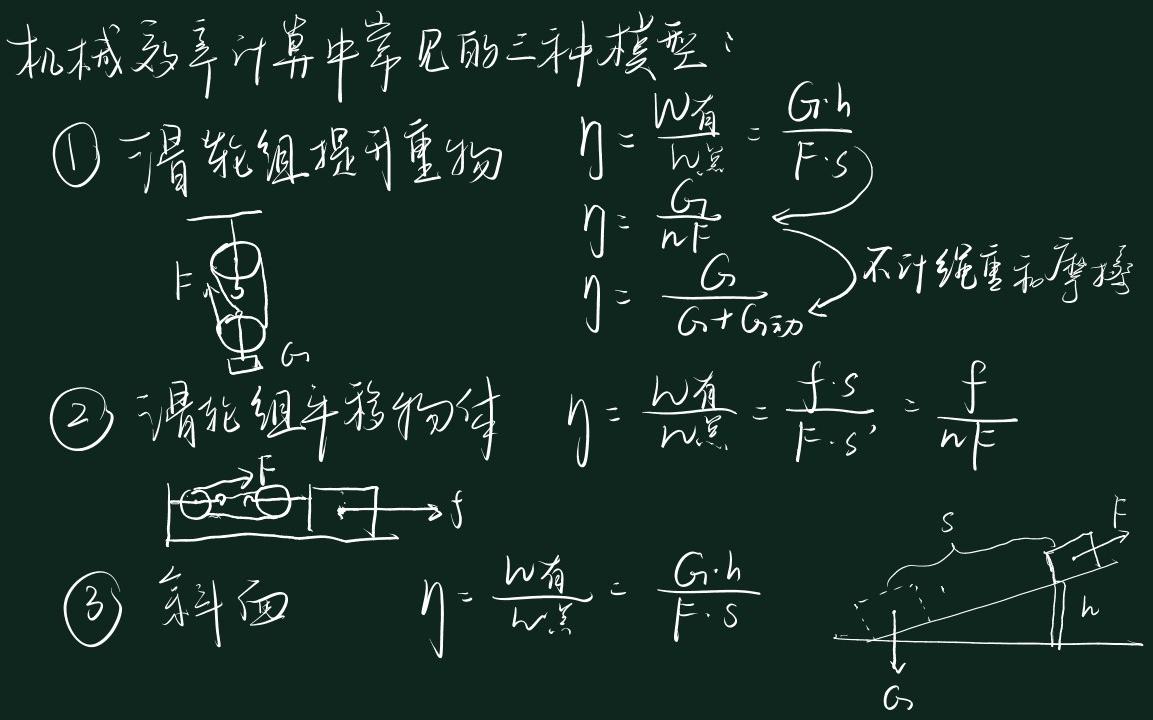 机械效率计算中常见的三种模型：
① 滑轮组提升重物 η = W有/W总 = G·h/F·s
η = G/nF
η = G/G+G动
不计绳重和摩擦
F
G
② 滑轮组平移物体 η = W有/W总 = f·s/F·s' = f/nF
F
f
③ 斜面 η = W有/W总 = G·h/F·s
s
F
h
G